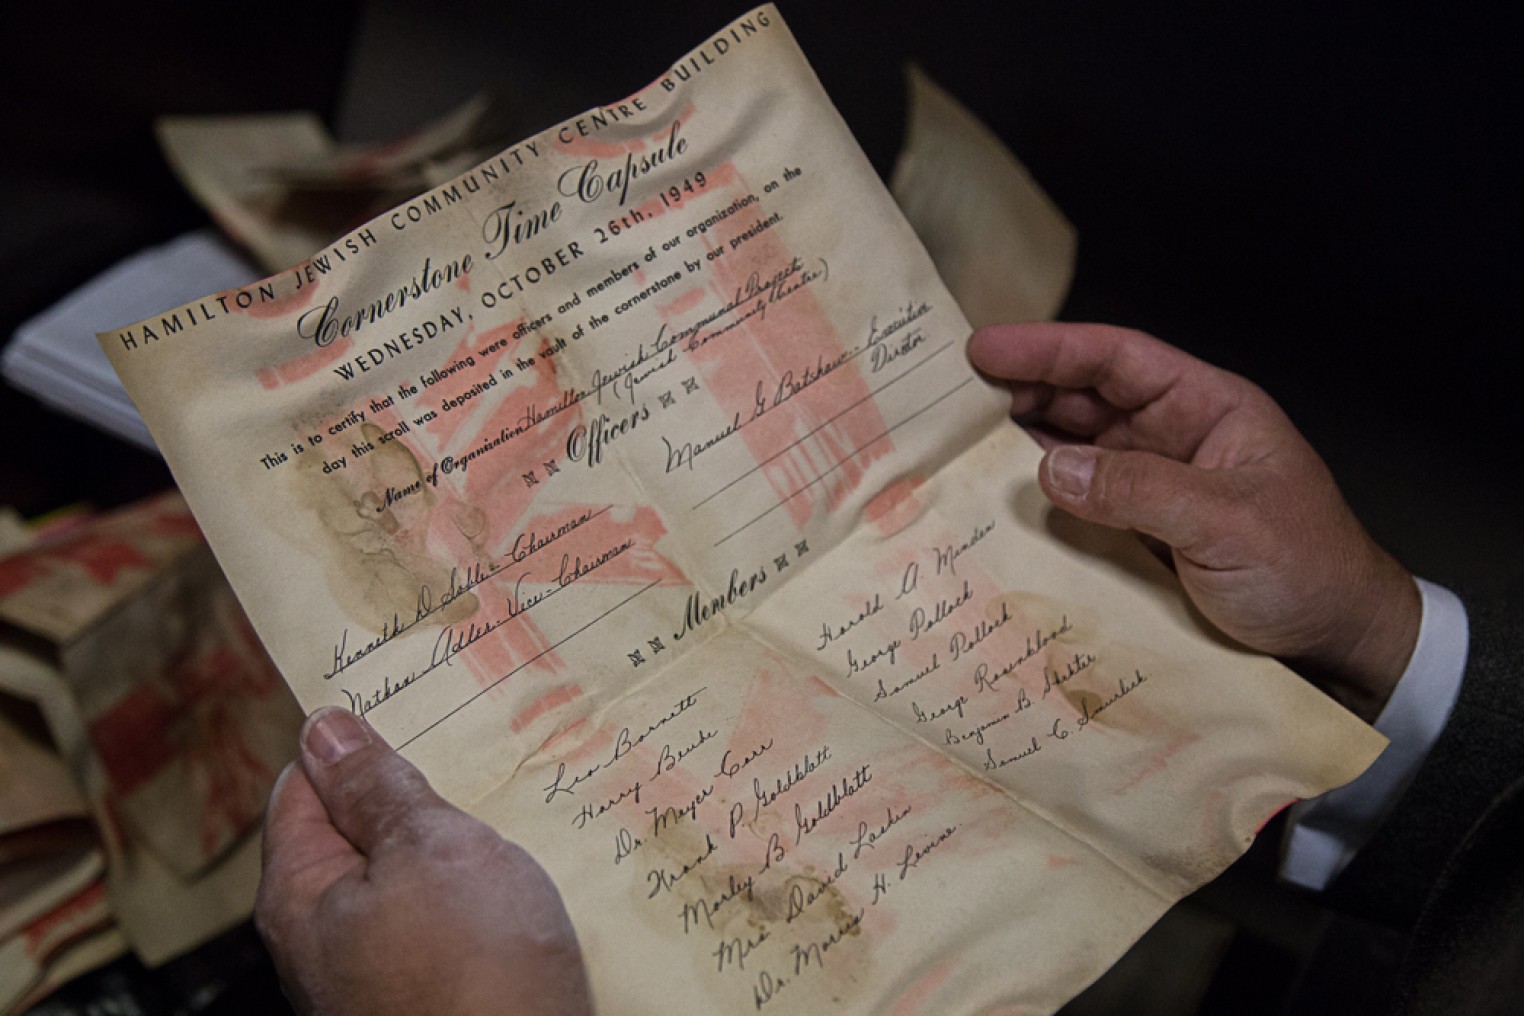 HAMILTON JEWISH COMMUNITY CENTRE BUILDING
Cornerstone Time Capsule
WEDNESDAY, OCTOBER 26th, 1949
This is to certify that the following were officers and members of our organization, on the
day this scroll was deposited in the vault of the cornerstone by our president.
Name of Organization Hamilton Jewish Communal Projects
(Jewish Community Theatre)
Officers
Kenneth D Soble - Chairman
Nathan Adler - Vice-Chairman
Manuel G Batshaw - Executive
Director
Members
Leo Barnett
Harry
Dr. Meyer Carr
Frank P. Goldblatt
Morley B Goldblatt
Mrs David Laskin
Dr. Morris H. Levine.
Harold A. Minden
George Pollock
Samuel Pollock
George Rosenblood
Benjamin B. Shekter
Samuel C. Smurlick